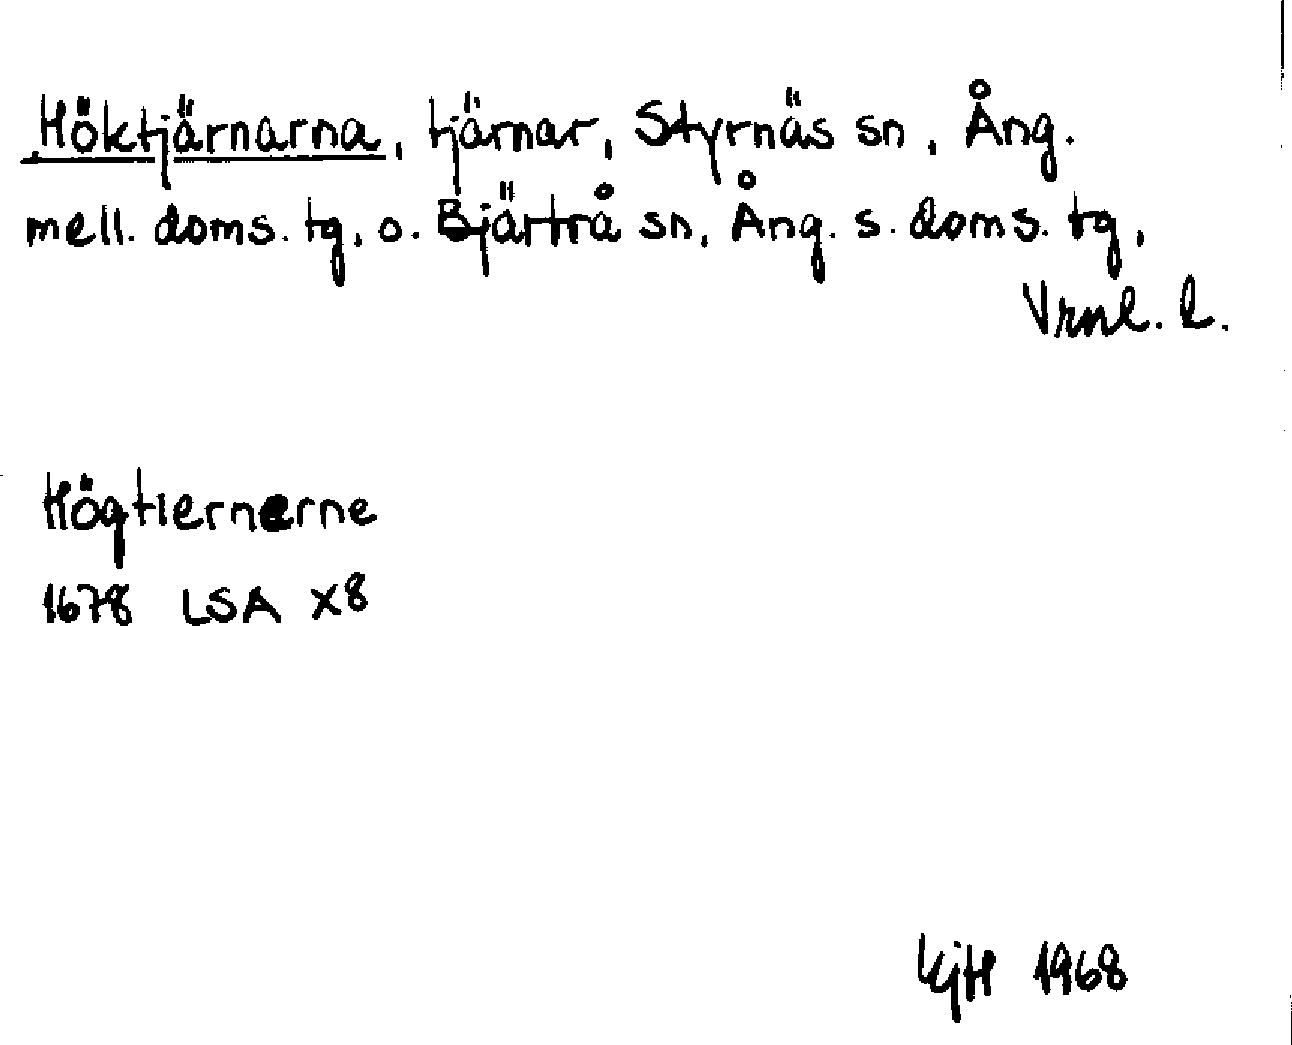 Höktjärnarna, tjärnar, Styrnäs sn, Ång.
mell. doms. tg, o. Bjärtrå sn, Ång. s. doms. tg,
Vrnl. l.
Högtiernerne
1678 LSA X8
1968